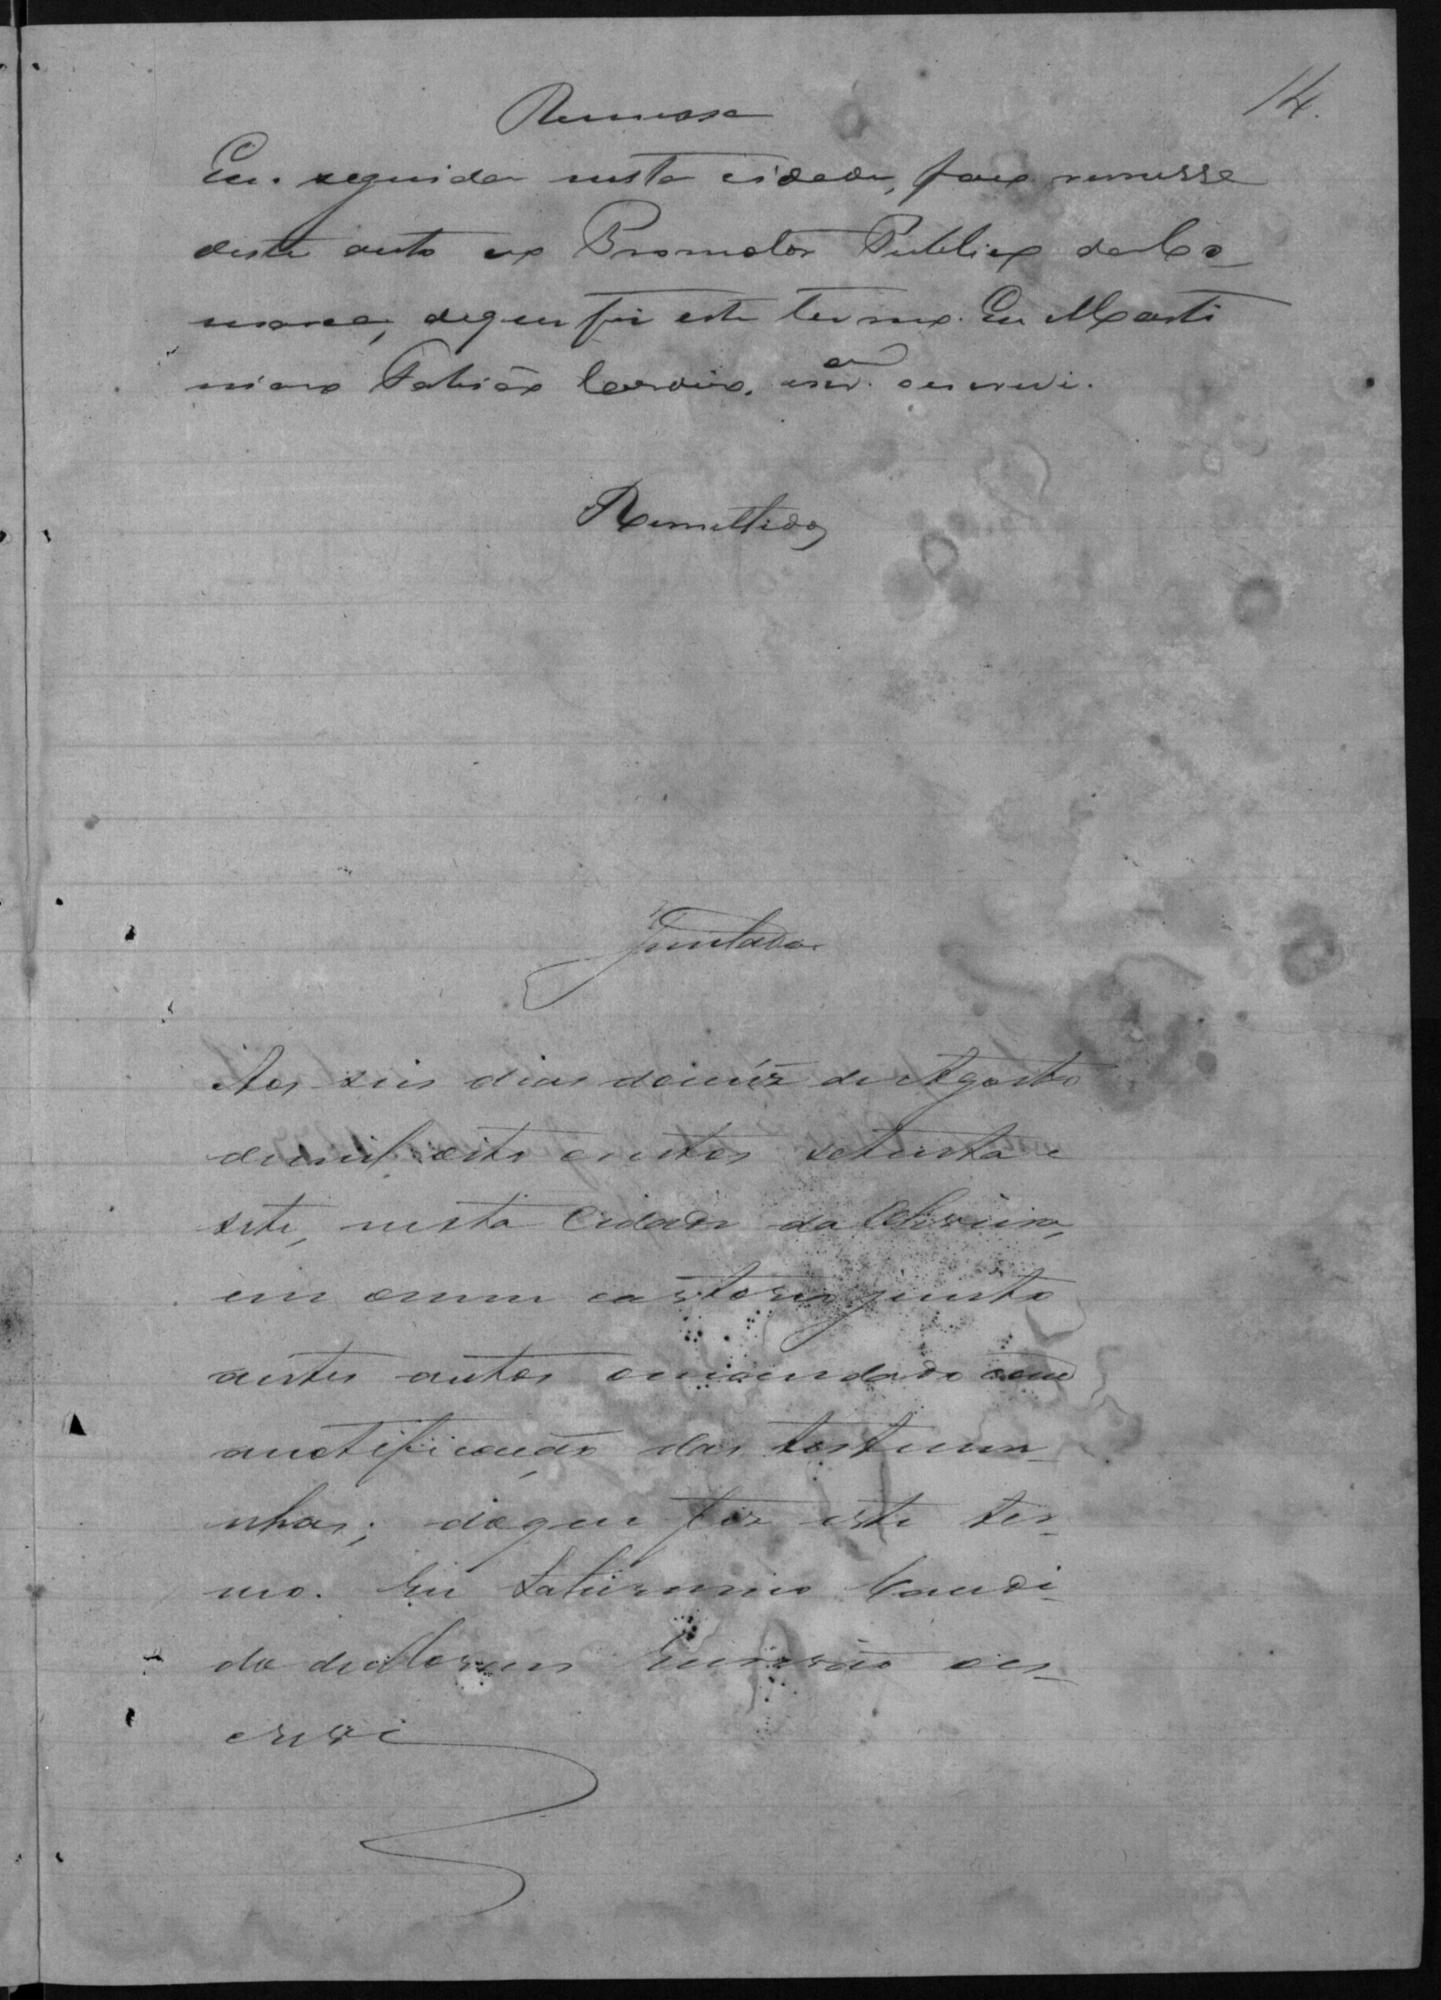 14.
Remessa
Em seguida nesta cidade, faço remessa
deste auto ao Promotor Publico da Co-
marca, de que fiz este termo. Eu Marti
niano Fabião escr.ᵃᵐ o escrevi.
Remettido
Juntada
Aos seis dias do mêz de Agosto
de mil oito centos setenta e
sete, nesta Cidade da Oliveira,
em o meu cartorio junto
a estes autos o mandado com
a notificação das testemu-
nhas; do que fiz este ter-
mo. Eu Saturnino Candi-
do de Moraes Escrivão o es-
crevi